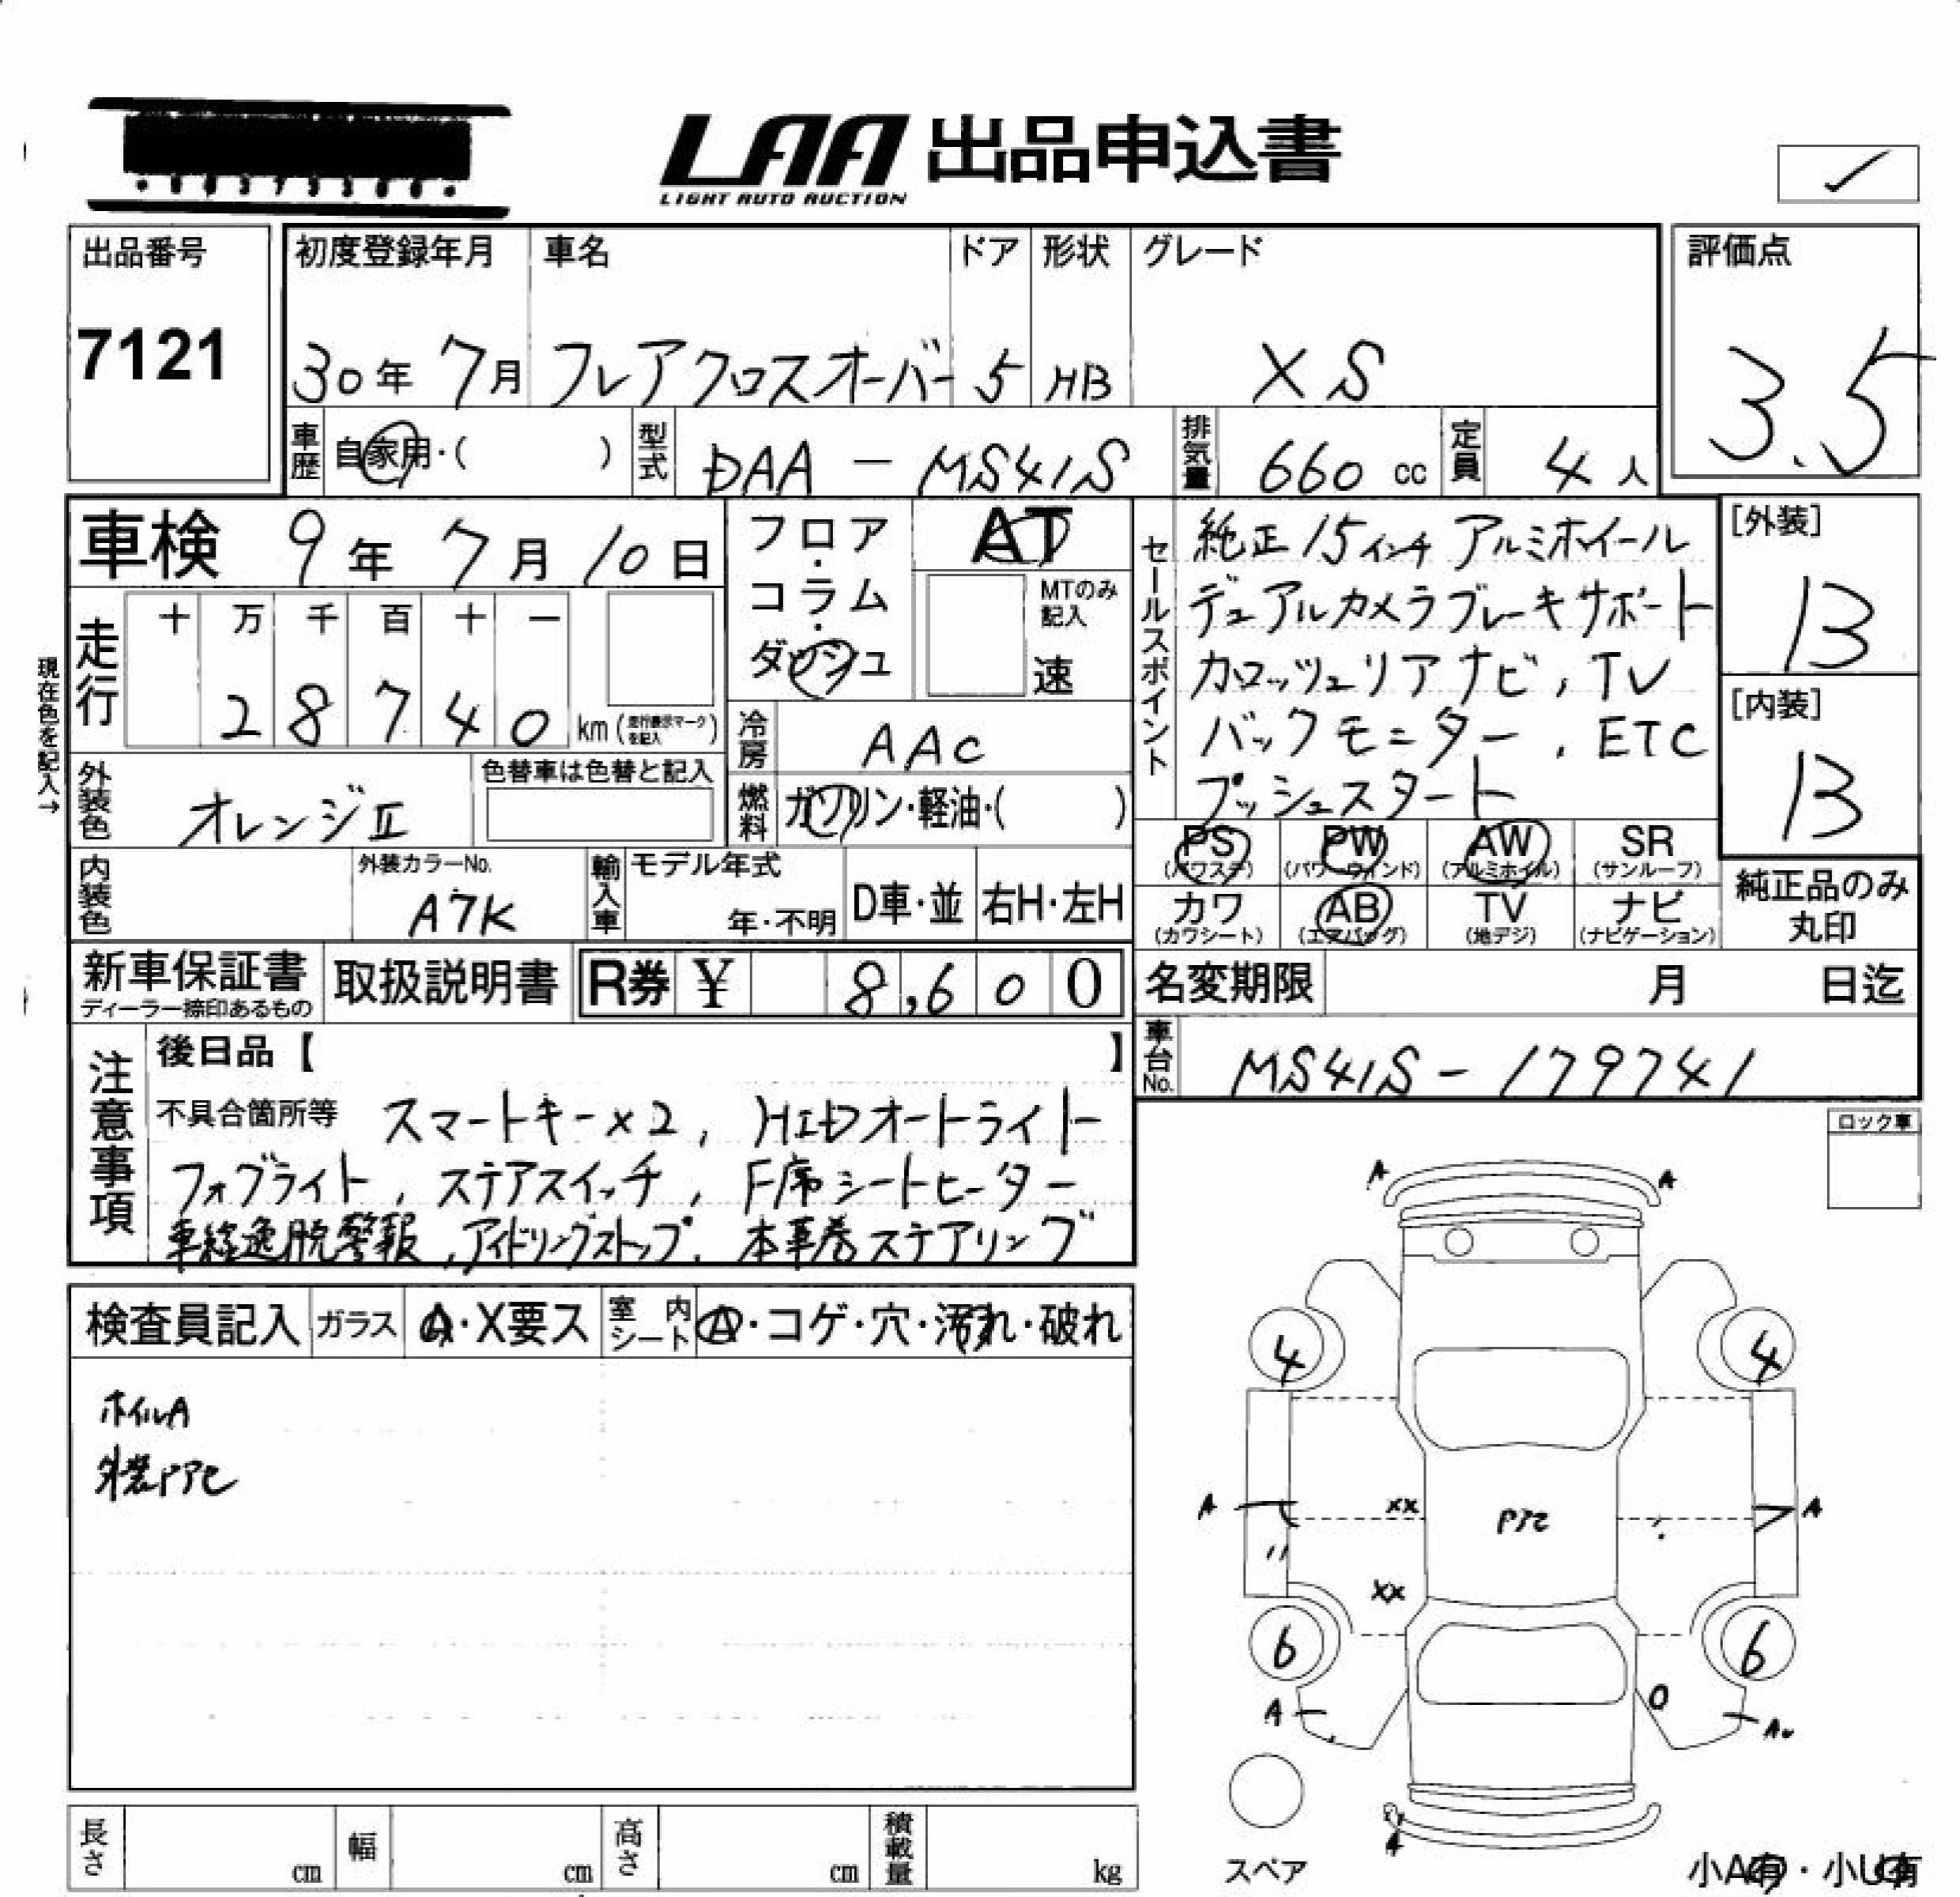 LAA 出品申込書
LIGHT AUTO AUCTION
出品番号
7121
初度登録年月
30年 7月
車名
フレアクロスオーバー
ドア
5
形状
HB
グレード
XS
評価点
3.5
車歴 自家用・( )
型式 DAA - MS41S
排気量 660 cc
定員 4 人
車検 9年 7月 10日
フロア・コラム・ダッシュ
AT
MTのみ記入
速
セールスポイント
純正15インチ アルミホイール
デュアルカメラブレーキサポート
カロッツェリアナビ, TV
バックモニター, ETC
プッシュスタート
[外装]
13
[内装]
13
現在色を記入→
走行
十 万 千 百 十 一
2 8 7 4 0 km (走行表示マークを記入)
冷房 AAC
外装色 オレンジII
色替車は色替と記入
燃料 ガソリン・軽油・( )
PS (パワステ) PW (パワーウィンド) AW (アルミホイル) SR (サンルーフ)
カワ (カワシート) AB (エアバッグ) TV (地デジ) ナビ (ナビゲーション)
純正品のみ丸印
内装色
外装カラーNo.
A7K
輸入車
モデル年式
年・不明
D車・並
右H・左H
新車保証書
ディーラー捺印あるもの
取扱説明書
R券 ¥ 8,600
名変期限 月 日迄
車台No. MS41S-179741
注意事項
後日品【 】
不具合箇所等 スマートキー×2, HIDオートライト
フォグライト, ステアスイッチ, F席シートヒーター
アイドリングストップ, 本革巻ステアリング
ロック車
検査員記入 ガラス A・X要ス 室内シート A・コゲ・穴・汚れ・破れ
ホイルA
A A
4 4
A XX A
XX
6 6
A
A
スペア
小A有・小U有
長さ cm 幅 cm 高さ cm 積載量 kg